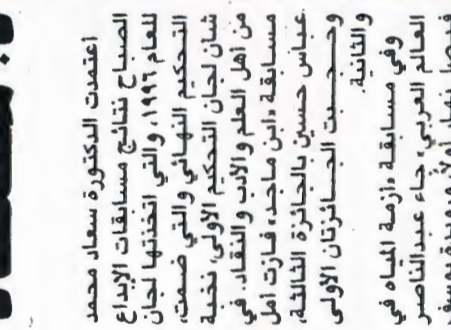 اعتمدت الدكتورة سعاد محمد
الصباح نتائج مسابقات الإبداع
للعام ١٩٩٦، والتي اتخذتها لجان
التحكيم النهائي والتي ضمت،
شأن لجان التحكيم الأولى، نخبة
من أهل العلم والأدب والنقاد. في
مسابقة «ابن ماجد» فازت أمل
عباس حسين بالجائزة الثالثة،
وحجبت الجائزتان الأولى
والثانية.
وفي مسابقة «أزمة المياه في
العالم العربي» جاء عبدالناصر